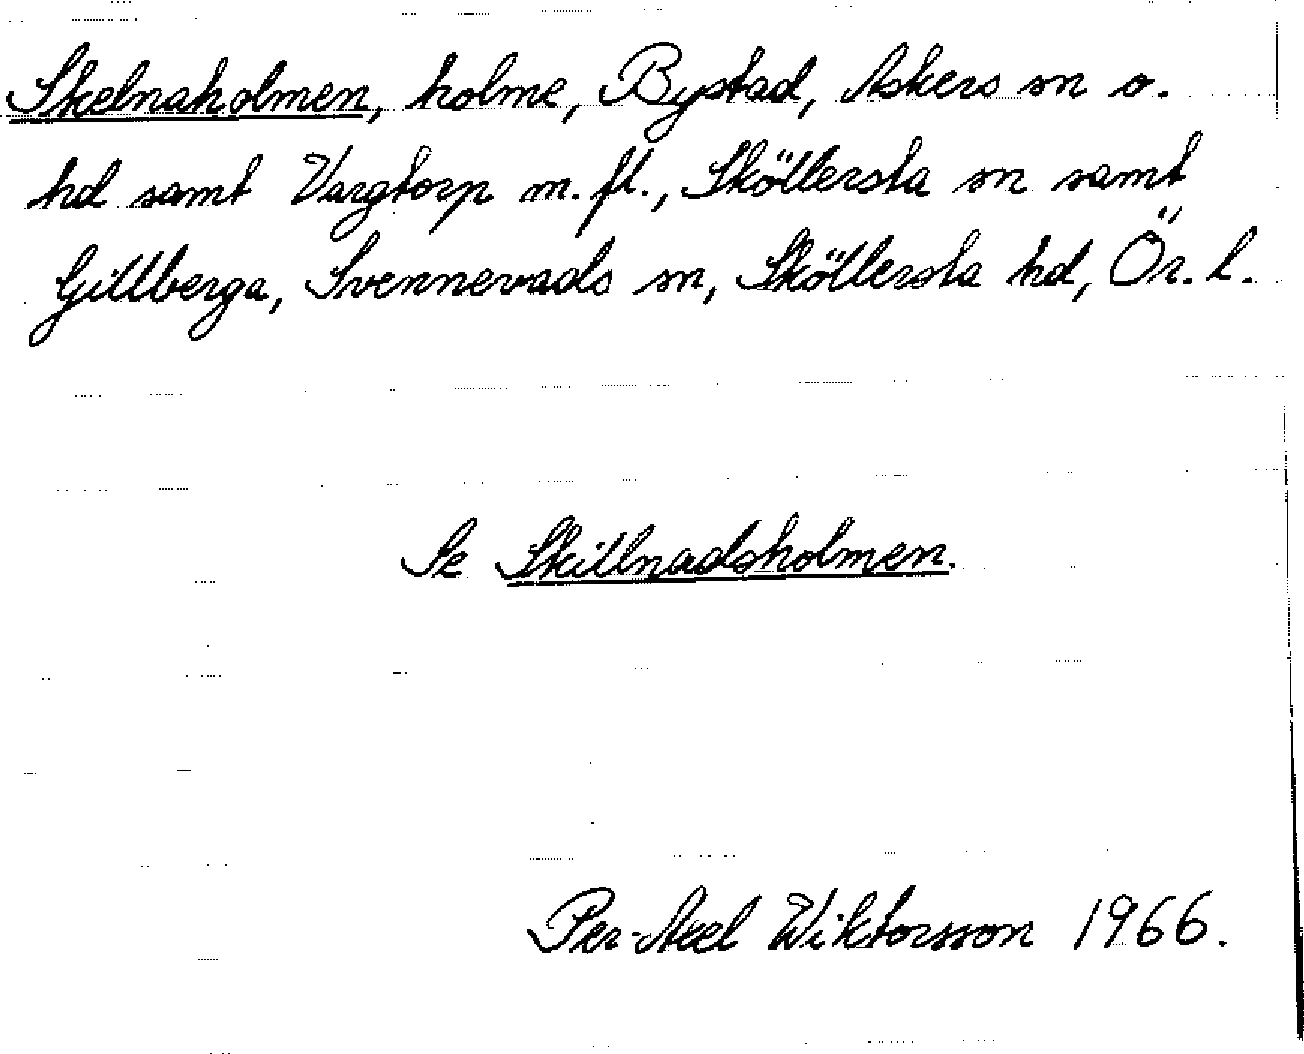 Skelnaholmen, holme, Bystad, Askers sn o.
hd samt Vargtorp m.fl., Sköllersta sn samt
Gillberga, Svennevads sn, Sköllersta hd, Ör. l.
Se Skillnadsholmen.
Per-Axel Wiktorsson 1966.